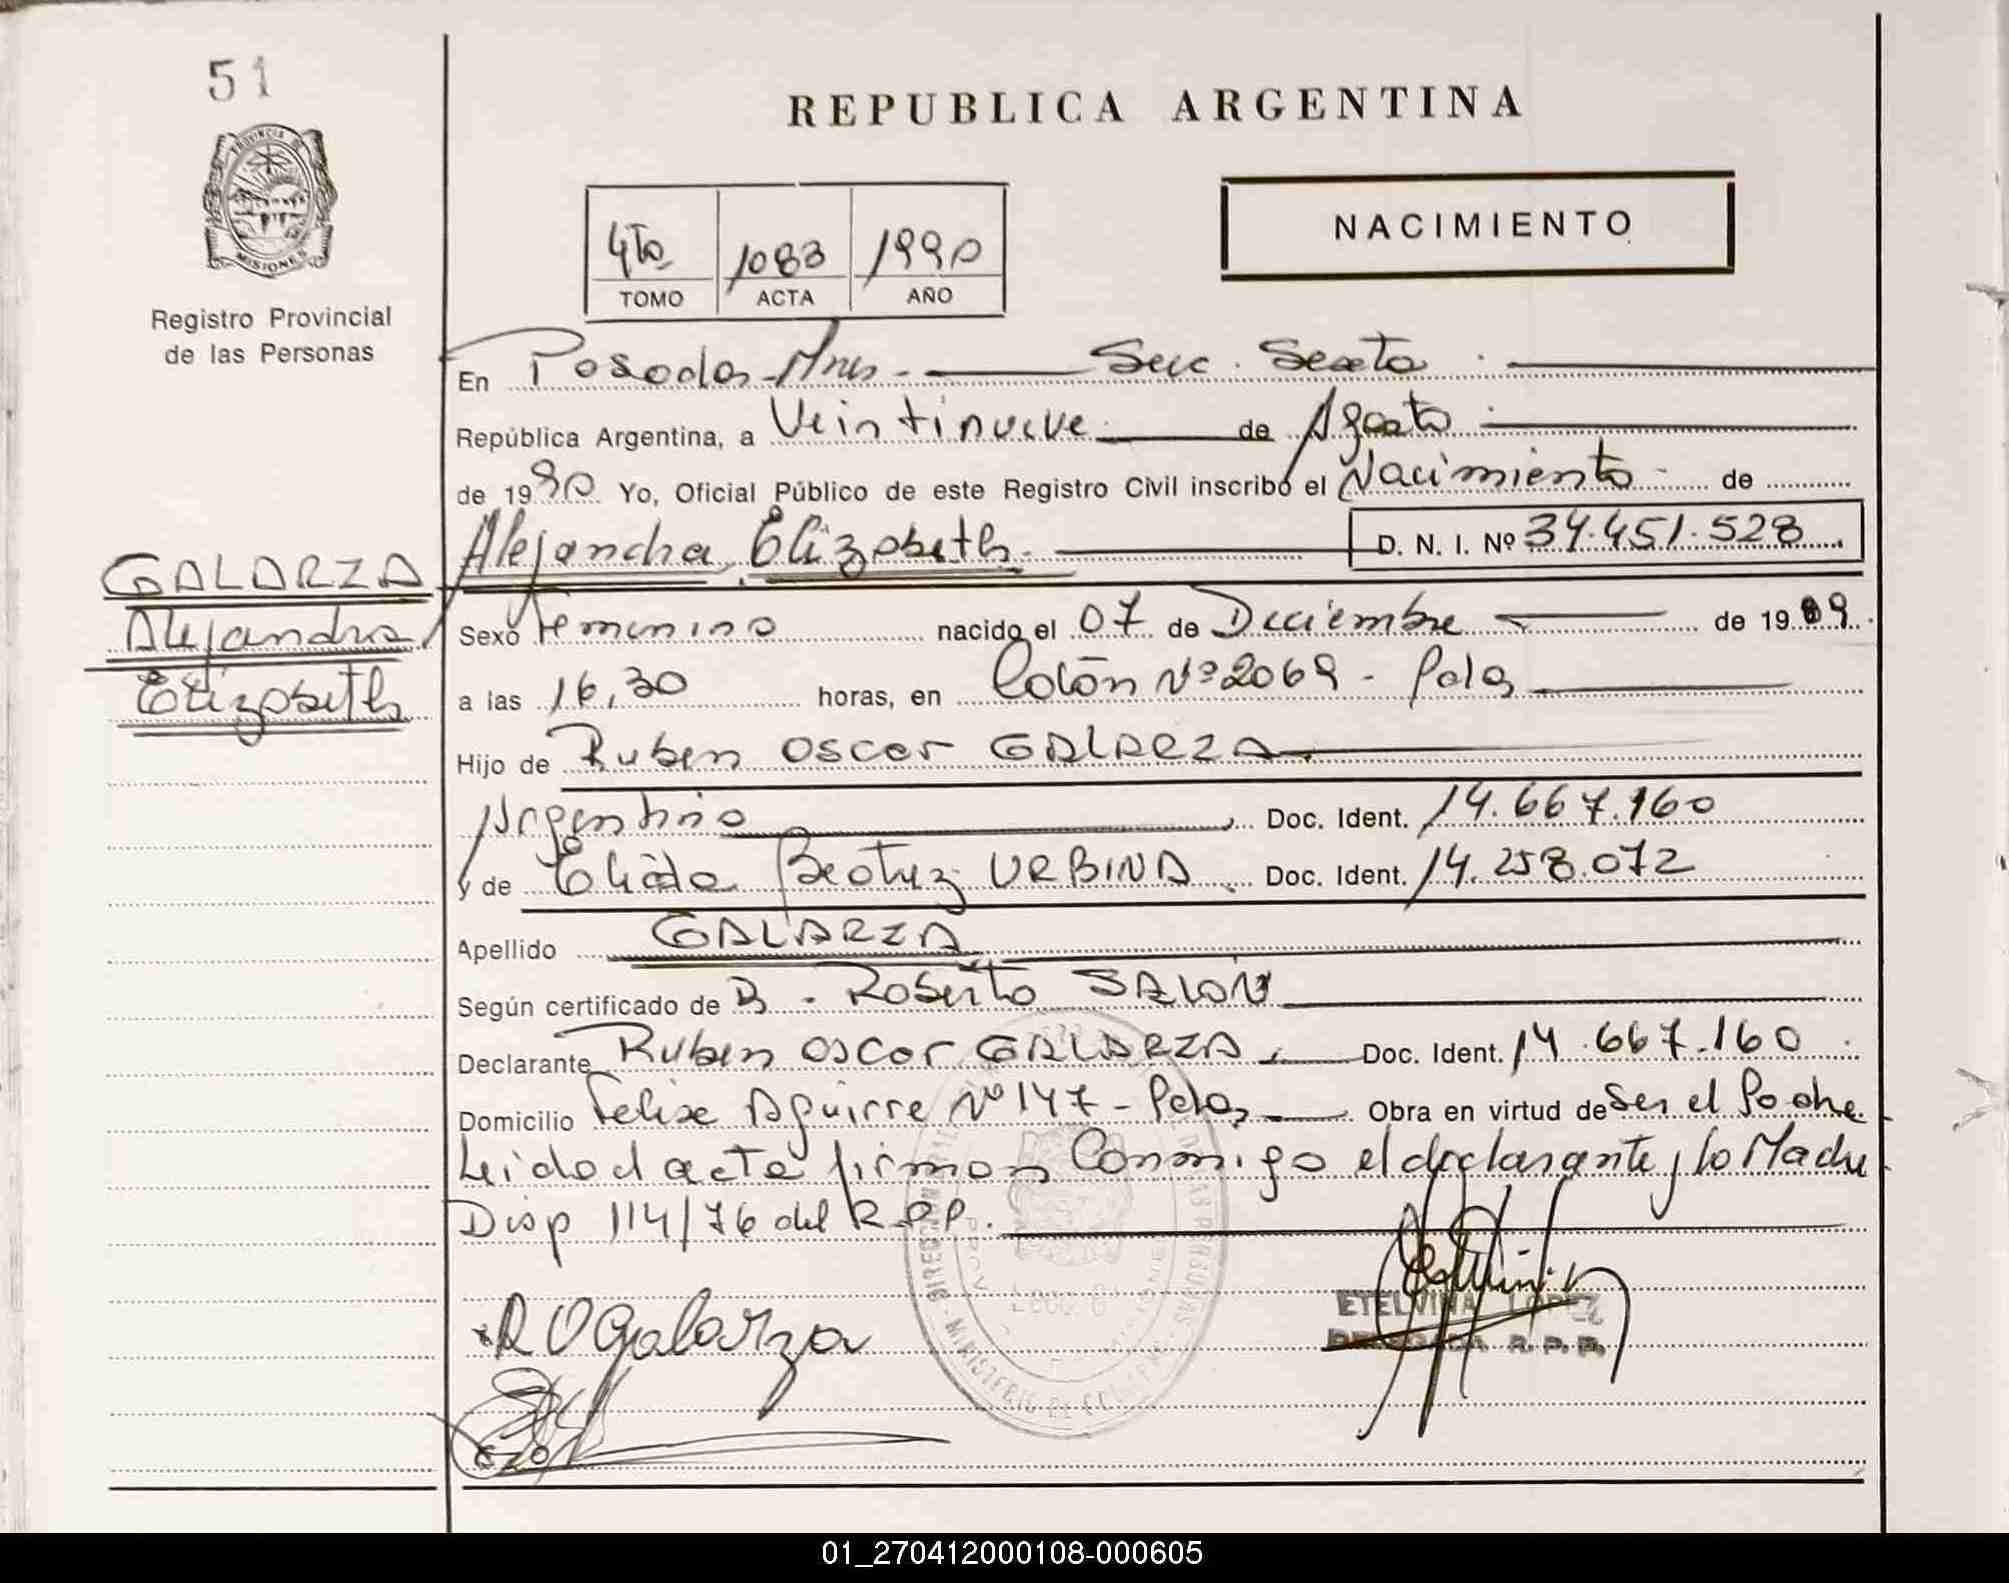 51
REPUBLICA ARGENTINA
PROVINCIA DE
MISIONES
Registro Provincial
de las Personas
4to 1083 1990
TOMO ACTA AÑO
NACIMIENTO
En Posadas - Mnes. - Secc. Sexta
República Argentina, a Veintinueve de Agosto
de 1990 Yo, Oficial Público de este Registro Civil inscribo el Nacimiento de
Alejandra Elizabeth D. N. I. Nº 34.451.528
GALARZA
Alejandra
Elizabeth
Sexo Femenino nacido el 07 de Diciembre de 1989
a las 16,30 horas, en Colón Nº 2069 - Pdas
Hijo de Ruben Oscar GALARZA
Argentino Doc. Ident. 14.667.160
y de Elida Beatriz URBINA Doc. Ident. 14.258.072
Apellido GALARZA
Según certificado de D. Roberto SALON
Declarante Ruben Oscar GALARZA Doc. Ident. 14.667.160
Domicilio Felix Aguirre Nº 147 - Pdas Obra en virtud de Ser el Padre
Leida el acta firman Conmigo el declarante y la Madre
Disp 114/76 del R.P.P.
ROGalarza
ETELVINA LOPEZ
DELEGADA R.P.P.
01_270412000108-000605